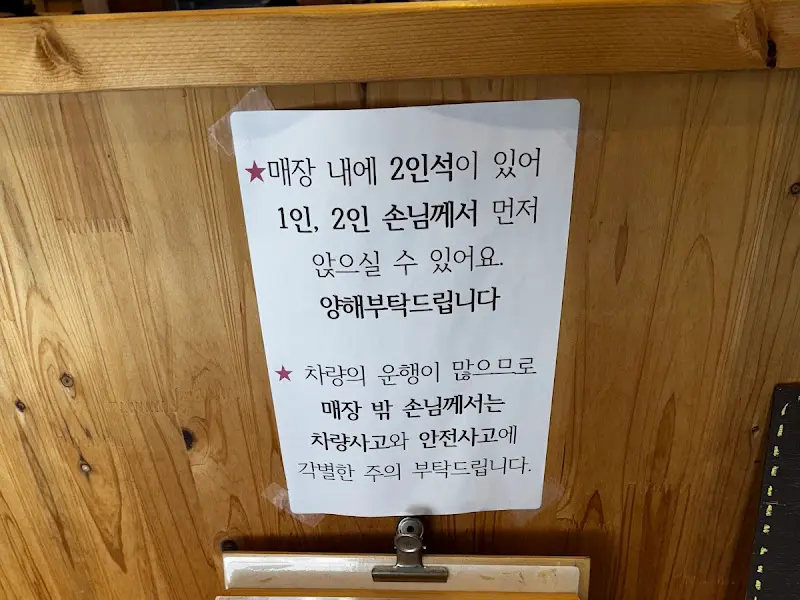 ★매장 내에 2인석이 있어
1인, 2인 손님께서 먼저
앉으실 수 있어요.
양해부탁드립니다
★ 차량의 운행이 많으므로
매장 밖 손님께서는
차량사고와 안전사고에
각별한 주의 부탁드립니다.